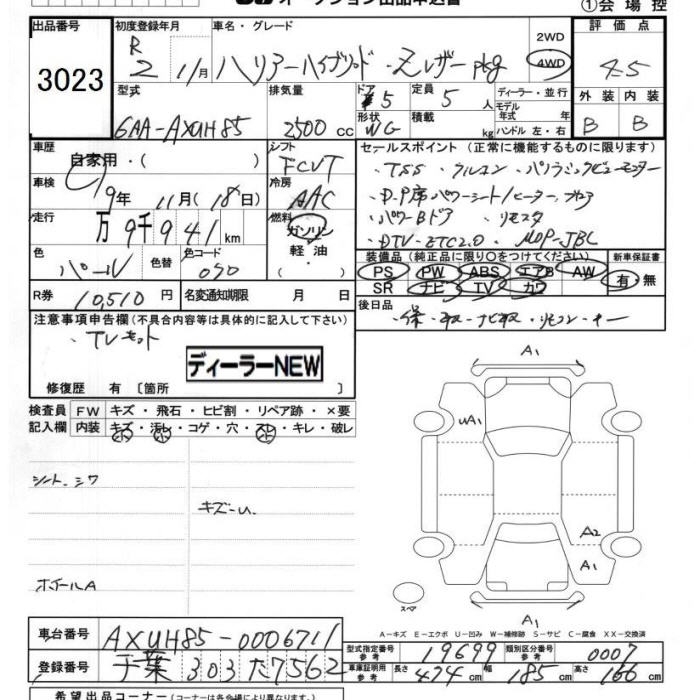 オークション出品申込書
①会場控
出品番号 3023
初度登録年月 R 2 11月
車名・グレード ハリアーハイブリッド・Zレザーpkg
2WD
4WD
評価点 4.5
型式 6AA-AXUH85
排気量 2500cc
ドア 5
定員 5人
形状 WG
積載 kg
ディーラー・並行
モデル年式 年式
ハンドル 左・右
外装 内装
B B
車歴 自家用・( )
シフト FCVT
車検 9年11月(18日)
冷房 AAC
走行 万9千941km
燃料 ガソリン 軽油・
色 パール
色替
カラーコード 090
R券 10,510円
名変通知期限 月 日
セールスポイント (正常に機能するものに限ります)
・TSS・クルコン・パノラミックビューモニター
・D-P席パワーシート/ヒーター、
・パワーBドア・リモスタ
・DTV・ETC2.0・MOP-JBL
装備品(純正品に限り○をつけてください)
新車保証書
PS PW ABS エアB AW
有・無
SR ナビ TV カワ
後日品
・保・取・ナビ取・リモコン・キー
注意事項申告欄(不具合内容等は具体的に記入して下さい)
・TVキット
ディーラーNEW
修復歴 有〔箇所 〕
検査員 FW キズ・飛石・ヒビ割・リペア跡・×要
記入欄 内装 キズ・汚レ・コゲ・穴・スレ・キレ・破レ
シート、シワ
キズ-U.
ホイールA
A1
uA1
A2
A1
スペア
A1
A-キズ E-エクボ U-凹み W-補修跡 S-サビ C-腐食 XX-交換済
車台番号 AXUH85-0006711
型式指定番号 参考 19699
類別区分番号 参考 0007
登録番号 千葉303た7562
車庫証明用 参考 長さ 474cm 幅 185cm 高さ 166cm
希望出品コーナー(コーナーは各会場により異なります)